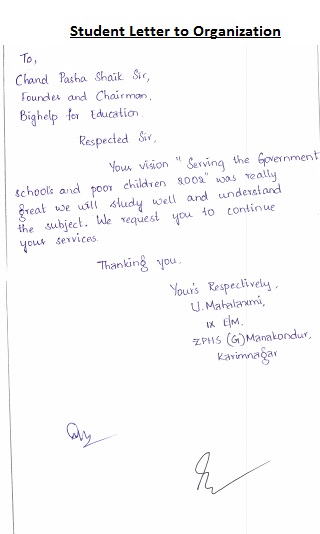 Student Letter to Organization
To,
Chand Pasha Shaik Sir,
Founder and Chairman,
Bighelp for Education.
Respected Sir,
Your vision "Serving the Government
schools and poor children 2002" was really
great we will study well and understand
the subject. We request you to continue
your services.
Thanking you.
Your's Respectively,
U. Mahalaxmi,
IX E/M.
ZPHS (G) Manakondur,
Karimnagar